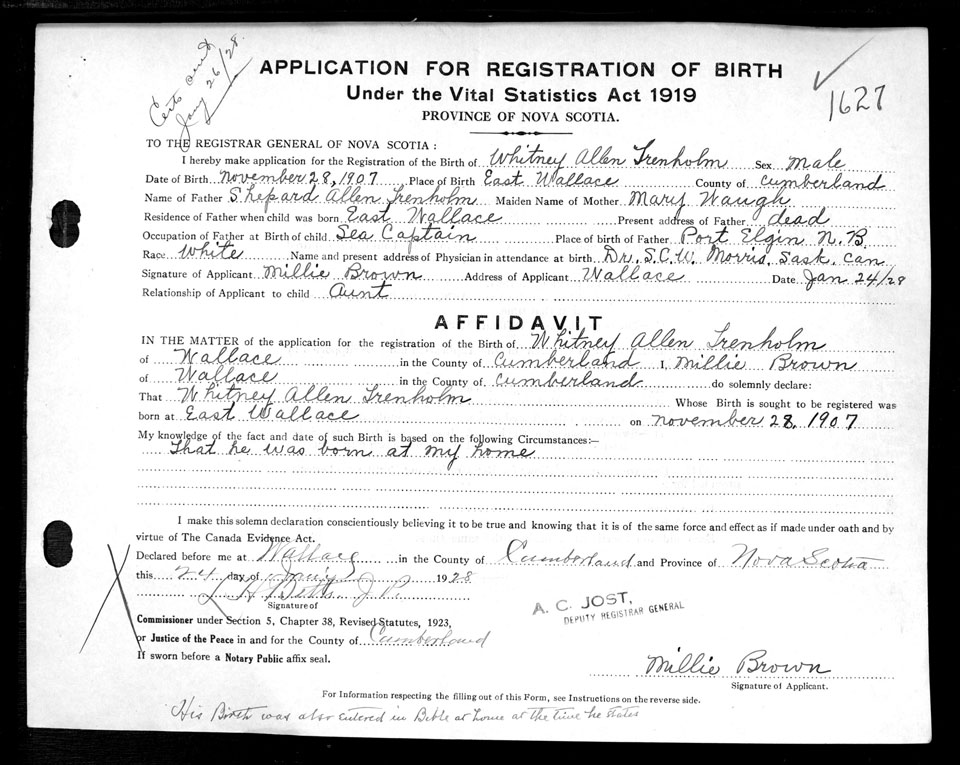 Certs and
Jany 26/28.
1627
APPLICATION FOR REGISTRATION OF BIRTH
Under the Vital Statistics Act 1919
PROVINCE OF NOVA SCOTIA.
TO THE REGISTRAR GENERAL OF NOVA SCOTIA :
I hereby make application for the Registration of the Birth of Whitney Allen Trenholm Sex Male
Date of Birth November 28, 1907 Place of Birth East Wallace County of Cumberland
Name of Father Shepard Allen Trenholm Maiden Name of Mother Mary Waugh
Residence of Father when child was born East Wallace Present address of Father dead
Occupation of Father at Birth of child Sea Captain Place of birth of Father Port Elgin N.B.
Race White Name and present address of Physician in attendance at birth Dr. S.C.W. Morris. Sask. Can
Signature of Applicant Millie Brown Address of Applicant Wallace Date Jan 24/28
Relationship of Applicant to child Aunt
AFFIDAVIT
IN THE MATTER of the application for the registration of the Birth of Whitney Allen Trenholm
of Wallace in the County of Cumberland I, Millie Brown
of Wallace in the County of Cumberland do solemnly declare:
That Whitney Allen Trenholm Whose Birth is sought to be registered was
born at East Wallace on November 28, 1907
My knowledge of the fact and date of such Birth is based on the following Circumstances:—
That he was born at my home
I make this solemn declaration conscientiously believing it to be true and knowing that it is of the same force and effect as if made under oath and by
virtue of The Canada Evidence Act.
Declared before me at Wallace in the County of Cumberland and Province of Nova Scotia
this 24 day of 1928
J.P.
Signature of
A. C. JOST,
DEPUTY REGISTRAR GENERAL
Commissioner under Section 5, Chapter 38, Revised Statutes, 1923,
or Justice of the Peace in and for the County of Cumberland
If sworn before a Notary Public affix seal.
Millie Brown
Signature of Applicant.
For Information respecting the filling out of this Form, see Instructions on the reverse side.
His Birth was also entered in Bible at home at the time he states